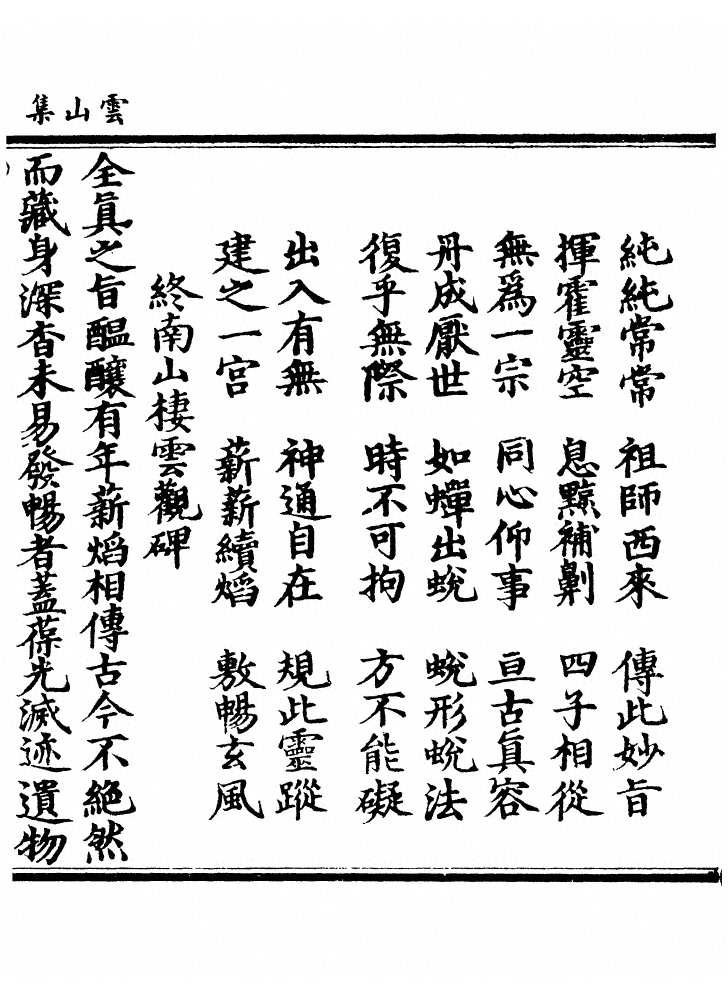 雲山集
純純常常　祖師西來　傳此妙旨
揮霍靈空　息黥補劓　四子相從
無爲一宗　同心仰事　亘古眞容
丹成厭世　如蟬出蛻　蛻形蛻法
復乎無際　時不可拘　方不能礙
出入有無　神通自在　規此靈蹤
建之一宮　薪薪續焰　敷暢玄風
終南山棲雲觀碑
全眞之旨醞釀有年薪焰相傳古今不絕然
而藏身深杳未易發暢者蓋葆光滅迹遺物